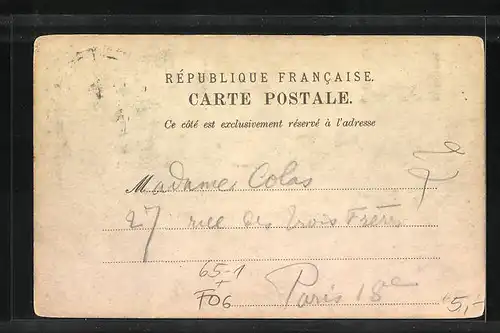 RÉPUBLIQUE FRANÇAISE.
CARTE POSTALE.
Ce côté est exclusivement réservé à l'adresse
Madames Colas
27 rue des Trois Frères
65-1
+
F06
Paris 18e
5,-